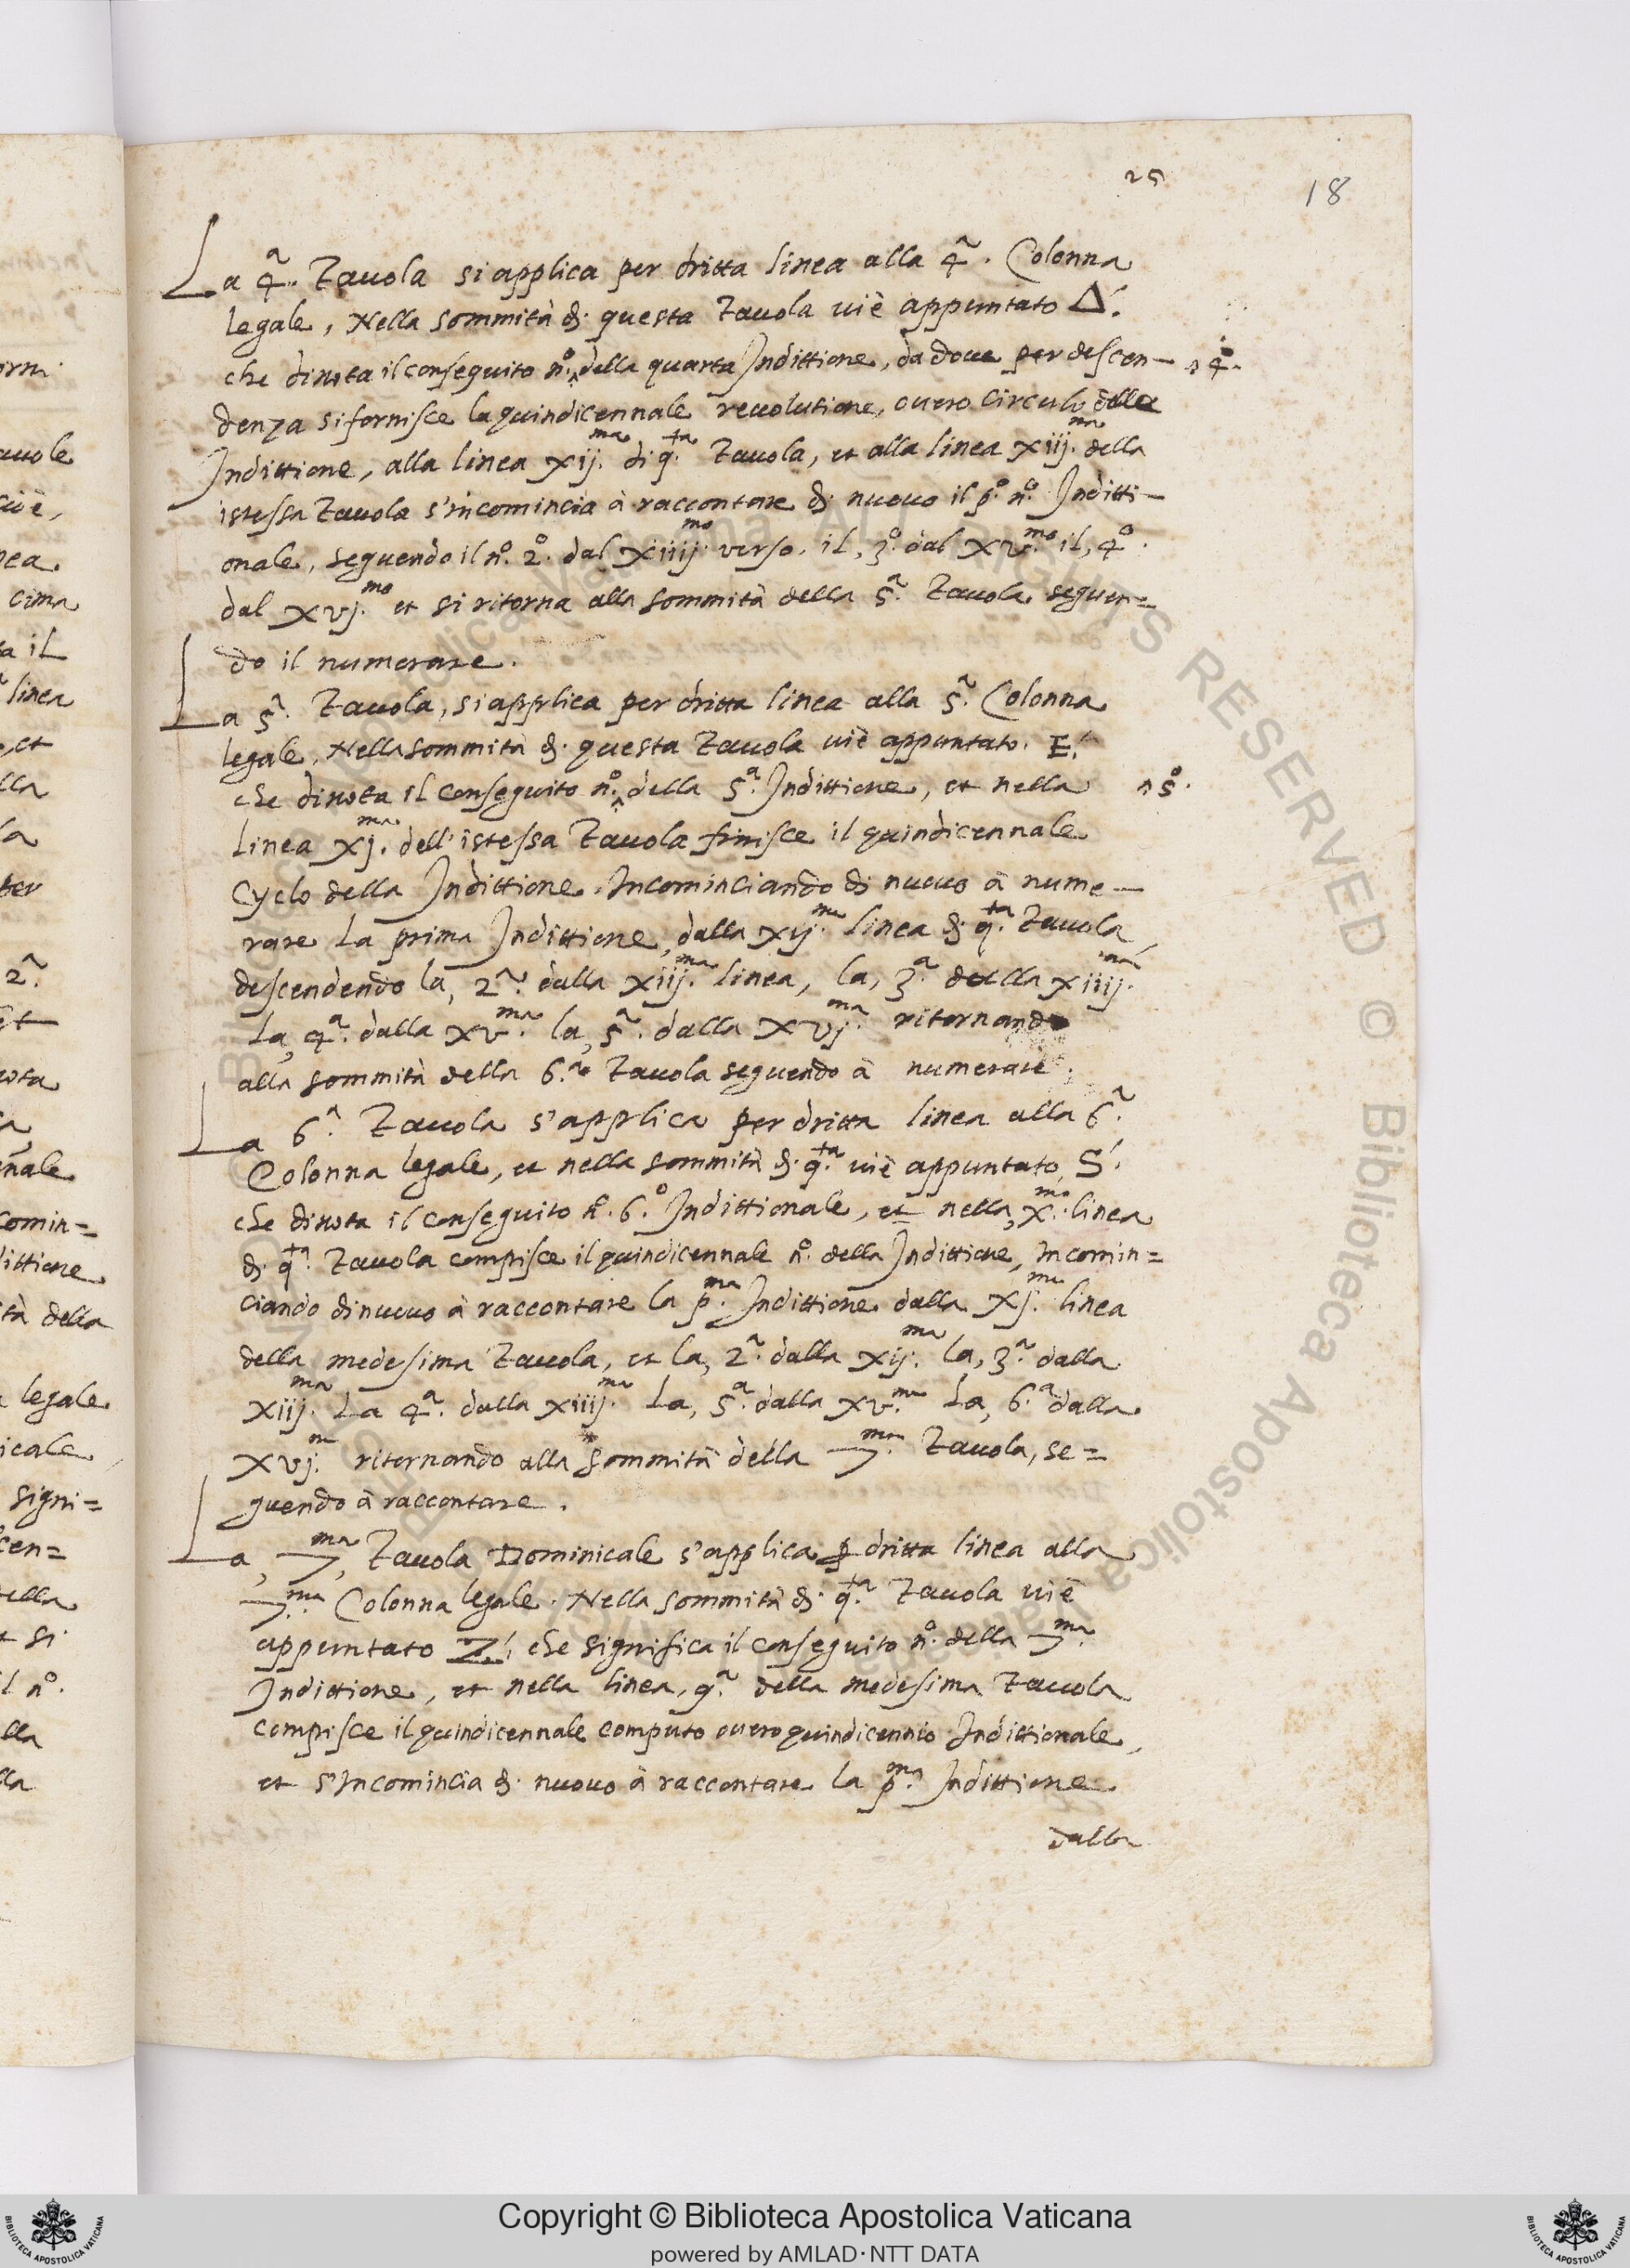 25
18
La 4.ª Tauola si applica per dritta linea alla 4.ª Colonna
legale, Nella sommità di questa Tauola uiè appuntato Δ´.
che dinota il conseguito n.º ^ della quarta Indittione, da doue per descen- ^ 4.º
denza si fornisce la quindicennale reuolutione, ouero circulo della
Indittione, alla linea xij.ma di q.ta Tauola, et alla linea xiij.ma della
istessa Tauola s'incomincia à raccontare di nuouo il p.º n.º Inditti-
onale, seguendo il n.º 2.º dal xiiij.mo verso. il, 3.º dal xv.mo il, 4.º
dal xvj.mo et si ritorna alla sommità della 5.ª Tauola seguen=
do il numerare.
La 5.ª Tauola, si applica per dritta linea alla 5.ª Colonna
legale, Nella sommità di questa Tauola uiè appuntato. E´.
che dinota il conseguito n.º ^ della 5.ª Indittione, et nella ^ 5.º
linea xj.ma dell'istessa Tauola finisce il quindicennale
Cyclo della Indittione. Incominciando di nuouo à nume-
rare la prima Indittione, dalla xij.ma linea di q.ta Tauola,
descendendo la, 2.ª dalla xiij.ma linea, la, 3.ª dalla xiiij.ma
la, 4.ª dalla xv.ma la, 5.ª dalla xvj.ma ritornando
alla sommità della 6.ª Tauola seguendo à numerare.
La 6.ª Tauola s'applica per dritta linea alla 6.ª
Colonna legale, et nella sommità di q.ta uiè appuntato, S´.
che dinota il conseguito n.º 6.º Indittionale, et nella, x.ma linea
di q.ta Tauola compisce il quindicennale n.º della Indittione, incomin=
ciando di nuouo à raccontare la p.ma Indittione dalla xj.ma linea
della medesima Tauola, et la, 2.ª dalla xij.ma la, 3.ª dalla
xiij.ma La 4.ª dalla xiiij.ma La, 5.ª dalla xv.ma La, 6.ª dalla
xvj.ma ritornando alla sommità della 7.ma Tauola, se=
guendo à raccontare.
La, 7.ma Tauola Dominicale s'applica ꝑ dritta linea alla
7.ma Colonna legale. Nella sommità di q.ta Tauola uiè
appuntato Z´, che significa il conseguito n.º della 7.ma
Indittione, et nella linea, 9.ª della medesima Tauola
compisce il quindicennale computo ouero quindicennio Indittionale,
et s'incomincia di nuouo à raccontare la p.ma Indittione
dalla
Copyright © Biblioteca Apostolica Vaticana
powered by AMLAD·NTT DATA